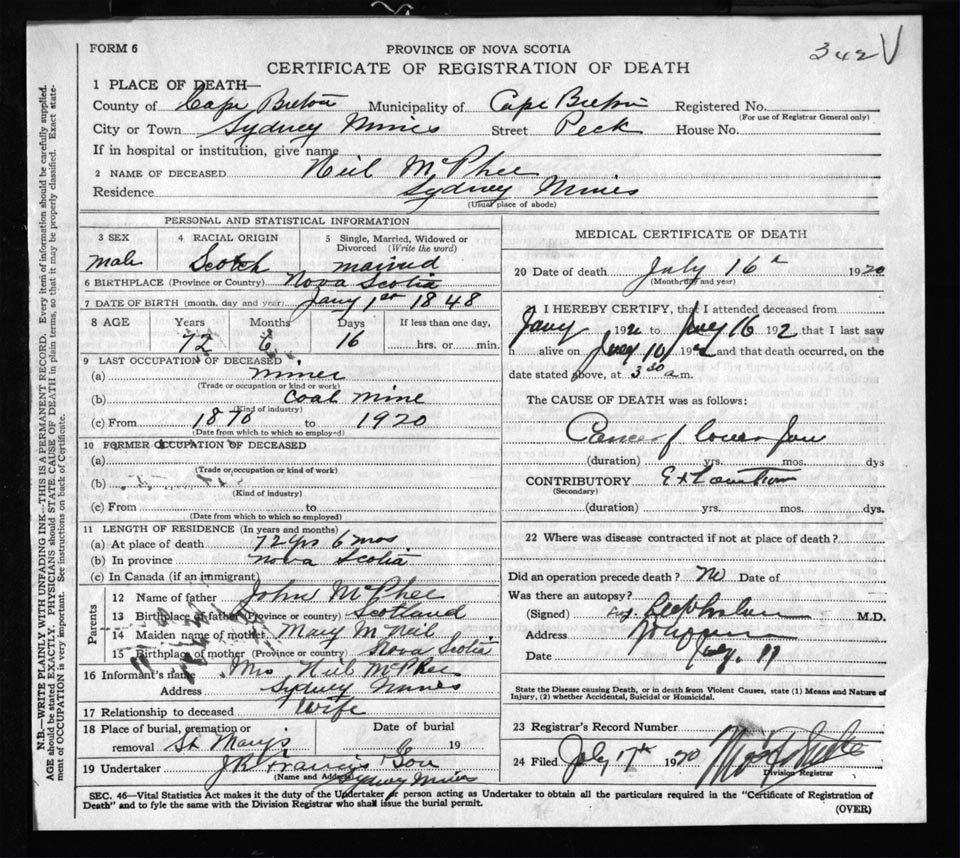 342 V
FORM 6
PROVINCE OF NOVA SCOTIA
CERTIFICATE OF REGISTRATION OF DEATH
1 PLACE OF DEATH—
County of Cape Breton Municipality of Cape Breton Registered No.
(For use of Registrar General only)
City or Town Sydney Mines Street Peck House No.
If in hospital or institution, give name
2 NAME OF DECEASED Neil McPhee
Residence Sydney Mines
(Usual place of abode)
PERSONAL AND STATISTICAL INFORMATION
3 SEX 4 RACIAL ORIGIN 5 Single, Married, Widowed or Divorced (Write the word)
male Scotch married
6 BIRTHPLACE (Province or Country) Nova Scotia
7 DATE OF BIRTH (month, day and year) Jany 1st 1848
8 AGE Years Months Days If less than one day,
72 6 16 hrs. or min.
9 LAST OCCUPATION OF DECEASED
(a) miner
(Trade or occupation or kind or work)
(b) Coal mine
(Kind of industry)
(c) From 1870 to 1920
(Date from which to which so employed)
10 FORMER OCCUPATION OF DECEASED
(a)
(Trade or occupation or kind of work)
(b)
(Kind of industry)
(c) From to
(Date from which to which so employed)
11 LENGTH OF RESIDENCE (In years and months)
(a) At place of death 72 yrs 6 mos
(b) In province Nova Scotia
(c) In Canada (if an immigrant)
Parents
12 Name of father John McPhee
13 Birthplace of father (Province or country) Scotland
14 Maiden name of mother Mary McNeil
15 Birthplace of mother (Province or country) Nova Scotia
16 Informant's name Mrs Neil McPhee
Address Sydney Mines
17 Relationship to deceased Wife
18 Place of burial, cremation or Date of burial
removal St Mary's 19
19 Undertaker J R Francis Son
(Name and Address) Sydney Mines
MEDICAL CERTIFICATE OF DEATH
20 Date of death July 16th 1920
(Month, day and year)
21 I HEREBY CERTIFY, that I attended deceased from
Jany 192 to July 16 192 that I last saw
h alive on July 10 192 and that death occurred, on the
date stated above, at 3 30 a m.
The CAUSE OF DEATH was as follows:
Cancer of lower Jaw
(duration) yrs. mos. dys
CONTRIBUTORY Exhaustion
(Secondary)
(duration) yrs. mos. dys.
22 Where was disease contracted if not at place of death?
Did an operation precede death? No Date of
Was there an autopsy?
(Signed) M.D.
Address
Date July
State the Disease causing Death, or in death from Violent Causes, state (1) Means and Nature of
Injury, (2) whether Accidental, Suicidal or Homicidal.
23 Registrar's Record Number
24 Filed July 1920
Division Registrar
SEC. 46—Vital Statistics Act makes it the duty of the Undertaker or person acting as Undertaker to obtain all the particulars required in the "Certificate of Registration of
Death" and to fyle the same with the Division Registrar who shall issue the burial permit.
(OVER)
N.B.—WRITE PLAINLY WITH UNFADING INK—THIS IS A PERMANENT RECORD. Every item of information should be carefully supplied.
AGE should be stated EXACTLY. PHYSICIANS should STATE CAUSE OF DEATH in plain terms, so that it may be properly classified. Exact state-
ment of OCCUPATION is very important. See instructions on back of Certificate.